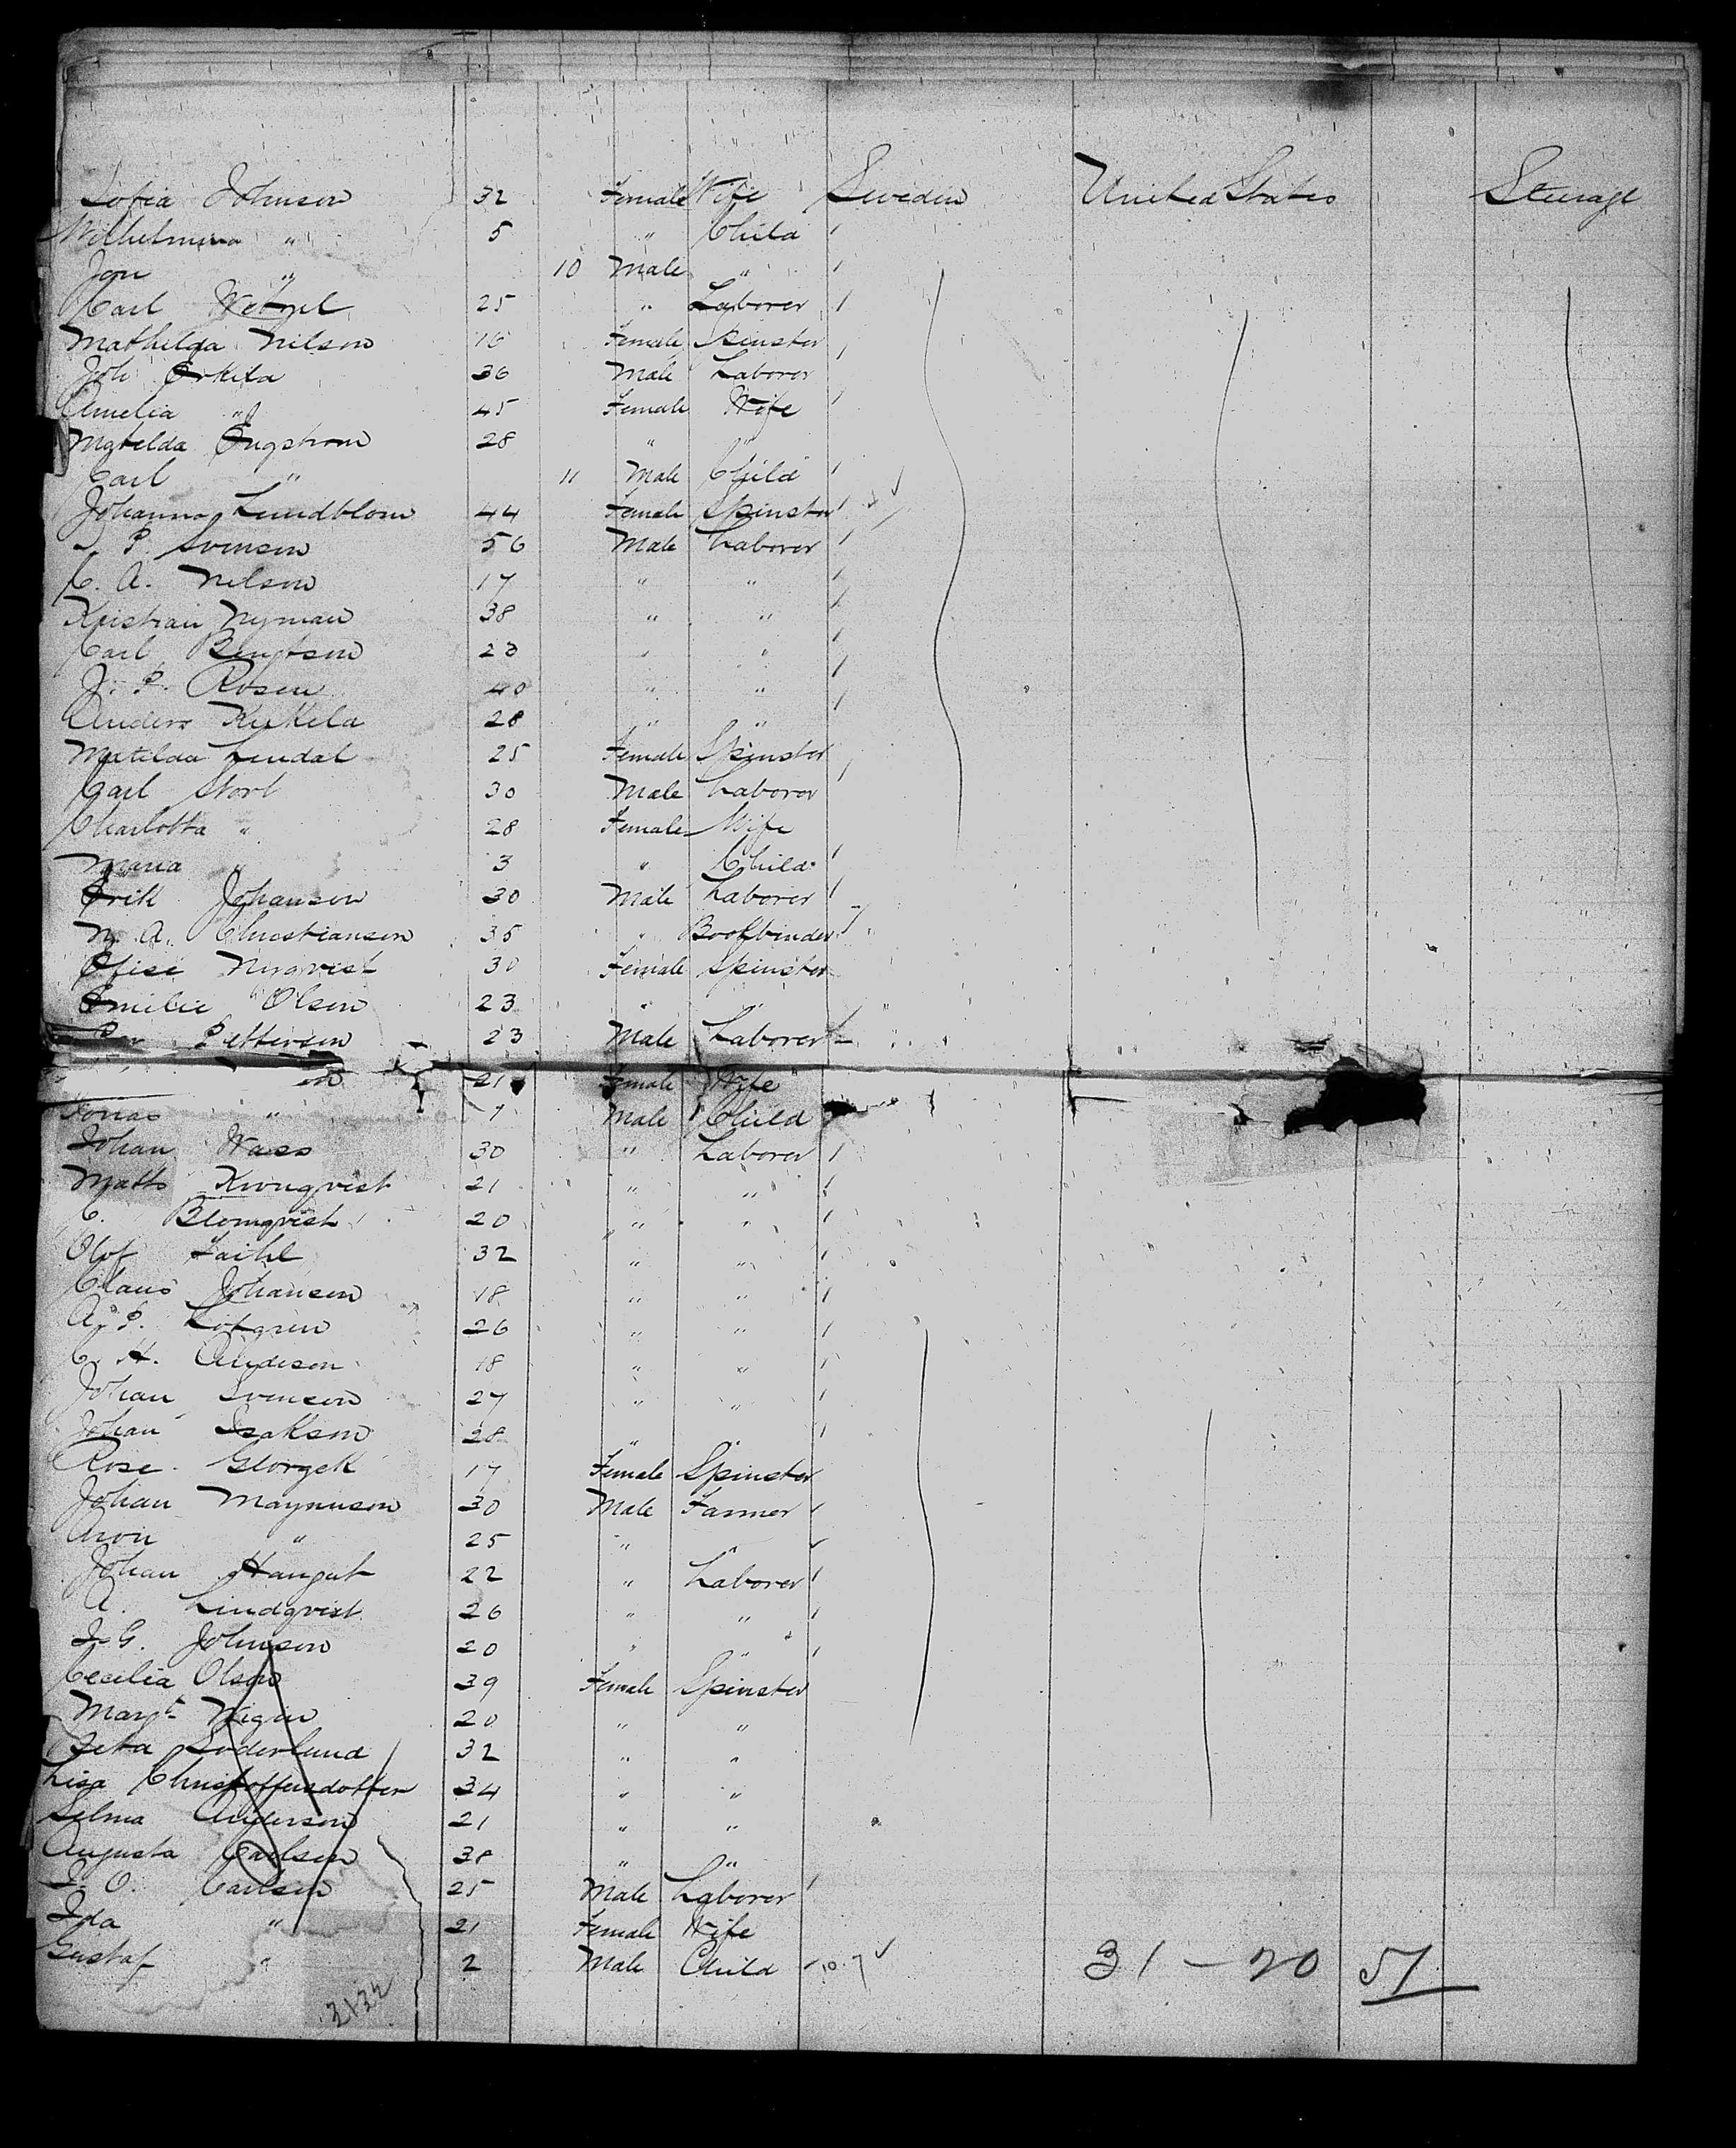 Sofia Johnson 32 Female Wife Sweden United States Steerage
Wilhelmina " 5 " Child
Jon " 10 Male "
Carl Wetzel 25 " Laborer
Mathilda Nilson 16 Female Spinster
Joh Erkila 36 Male Laborer
Amelia " 45 Female Wife
Matelda Engstrom 28 " "
Carl " 11 Male Child
Johanna Lundblom 44 Female Spinster
P. Svenson 56 Male Laborer
C. A. Nelson 17 " "
Kristian Nyman 38 " "
Carl Bengtson 23 " "
J. P. Rosen 40 " "
Anders Kukkila 28 " "
Matilda Lindal 25 Female Spinster
Carl Storl 30 Male Laborer
Charlotta " 28 Female Wife
Maria " 3 " Child
Erik Johanson 30 Male Laborer
N. A. Christiansen 35 " Bookbinder
Elise Nyqvist 30 Female Spinster
Emilie Olson 23 " "
Per Petterson 23 Male Laborer
21 Female Wife
Jonas " 1 Male Child
Johan Wass 30 " Laborer
Matts Kronqvist 21 " "
C. Blomqvist 20 " "
Olof Faihl 32 " "
Claus Johanson 18 " "
A. P. Lofgren 26 " "
C. H. Anderson 18 " "
Johan Svenson 27 " "
Johan Isakson 28 " "
Rose Glorgek 17 Female Spinster
Johan Magnuson 30 Male Farmer
Aron " 25 " "
Johan Hangat 22 " Laborer
A. Lindqvist 26 " "
J. G. Johnson 20 " "
Cecilia Olson 39 Female Spinster
Margt Wigin 20 " "
Beta Soderlund 32 " "
Lisa Christoffersdotter 34 " "
Selma Anderson 21 " "
Augusta Carlson 38 " "
J. O. Carlson 25 Male Laborer
Ida " 21 Female Wife
Gustaf " 2 Male Child 10.7 31 - 20 51
3132